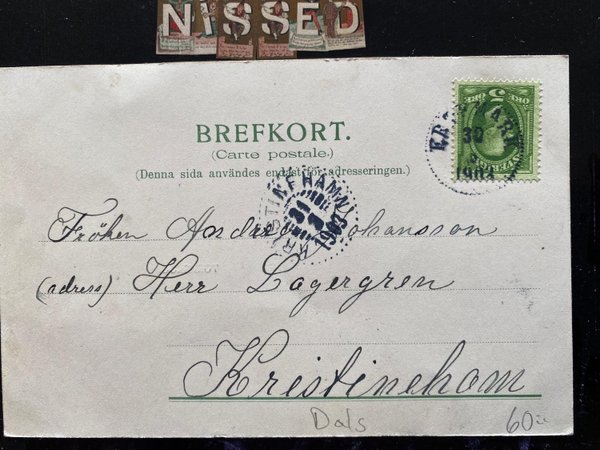 NISSED
BREFKORT.
(Carte postale.)
(Denna sida användes endast för adresseringen.)
30
1903
KRISTINEHAMN
31
1903
Fröken Johansson
(adress) Herr Lagergren
Kristineham
Dals
60